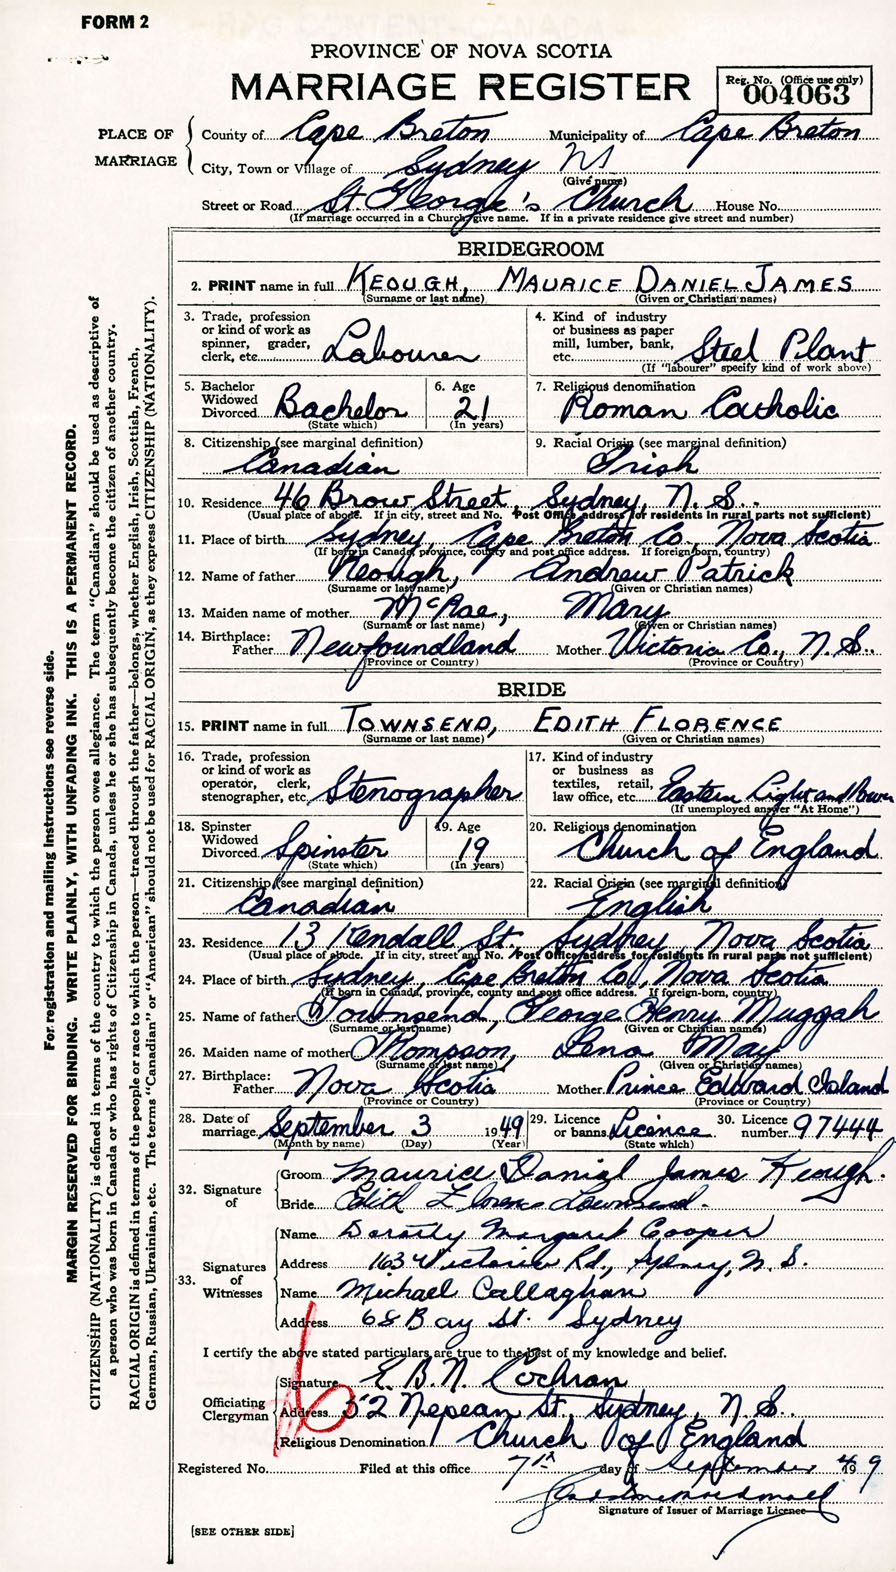 FORM 2
PROVINCE OF NOVA SCOTIA
MARRIAGE REGISTER
Reg. No. (Office use only)
004063
PLACE OF MARRIAGE
County of Cape Breton Municipality of Cape Breton
City, Town or Village of Sydney NS
(Give name)
Street or Road St. George's Church House No.
(If marriage occurred in a Church give name. If in a private residence give street and number)
BRIDEGROOM
2. PRINT name in full KEOUGH, MAURICE DANIEL JAMES
(Surname or last name) (Given or Christian names)
3. Trade, profession or kind of work as spinner, grader, clerk, etc. Labourer
4. Kind of industry or business as paper mill, lumber, bank, etc. Steel Plant
(If "labourer" specify kind of work above)
5. Bachelor Widowed Divorced Bachelor
(State which)
6. Age 21
(In years)
7. Religious denomination
Roman Catholic
8. Citizenship (see marginal definition)
Canadian
9. Racial Origin (see marginal definition)
Irish
10. Residence 46 Brow Street, Sydney, N. S.
(Usual place of abode. If in city, street and No. Post Office address for residents in rural parts not sufficient)
11. Place of birth Sydney, Cape Breton Co, Nova Scotia
(If born in Canada, province, county and post office address. If foreign born, country)
12. Name of father Keough, Andrew Patrick
(Surname or last name) (Given or Christian names)
13. Maiden name of mother McRae, Mary
(Surname or last name) (Given or Christian names)
14. Birthplace: Father Newfoundland Mother Victoria Co., N. S.
(Province or Country) (Province or Country)
BRIDE
15. PRINT name in full TOWNSEND, EDITH FLORENCE
(Surname or last name) (Given or Christian names)
16. Trade, profession or kind of work as operator, clerk, stenographer, etc. Stenographer
17. Kind of industry or business as textiles, retail, law office, etc. Eastern Light and Power
(If unemployed answer "At Home")
18. Spinster Widowed Divorced Spinster
(State which)
19. Age 19
(In years)
20. Religious denomination
Church of England
21. Citizenship (see marginal definition)
Canadian
22. Racial Origin (see marginal definition)
English
23. Residence 13 Kendall St. Sydney, Nova Scotia
(Usual place of abode. If in city, street and No. Post Office address for residents in rural parts not sufficient)
24. Place of birth Sydney, Cape Breton Co, Nova Scotia
(If born in Canada, province, county and post office address. If foreign-born, country)
25. Name of father Townsend, George Henry Muggah
(Surname or last name) (Given or Christian names)
26. Maiden name of mother Thompson, Lena May
(Surname or last name) (Given or Christian names)
27. Birthplace: Father Nova Scotia Mother Prince Edward Island
(Province or Country) (Province or Country)
28. Date of marriage September 3 1949
(Month by name) (Day) (Year)
29. Licence or banns Licence
(State which)
30. Licence number 97444
32. Signature of
Groom Maurice Daniel James Keough.
Bride Edith Florence Townsend.
33. Signatures of Witnesses
Name Dorothy Margaret Cooper
Address 163 Victoria Rd., Sydney, N. S.
Name Michael Callaghan
Address 68 Bay St. Sydney
I certify the above stated particulars are true to the best of my knowledge and belief.
Officiating Clergyman
Signature E. B. N. Cochran
Address 52 Nepean St. Sydney, N S.
Religious Denomination Church of England
Registered No. Filed at this office 7th day of September 1949
Signature of Issuer of Marriage Licence
[SEE OTHER SIDE]
For registration and mailing instructions see reverse side.
MARGIN RESERVED FOR BINDING. WRITE PLAINLY, WITH UNFADING INK. THIS IS A PERMANENT RECORD.
CITIZENSHIP (NATIONALITY) is defined in terms of the country to which the person owes allegiance. The term "Canadian" should be used as descriptive of
a person who was born in Canada or who has rights of Citizenship in Canada, unless he or she has subsequently become the citizen of another country.
RACIAL ORIGIN is defined in terms of the people or race to which the person—traced through the father—belongs, whether English, Irish, Scottish, French,
German, Russian, Ukrainian, etc. The terms "Canadian" or "American" should not be used for RACIAL ORIGIN, as they express CITIZENSHIP (NATIONALITY).